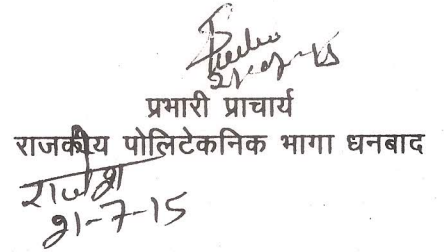 21-07-15
प्रभारी प्राचार्य
राजकीय पोलिटेकनिक भागा धनबाद
राजेश
21-7-15